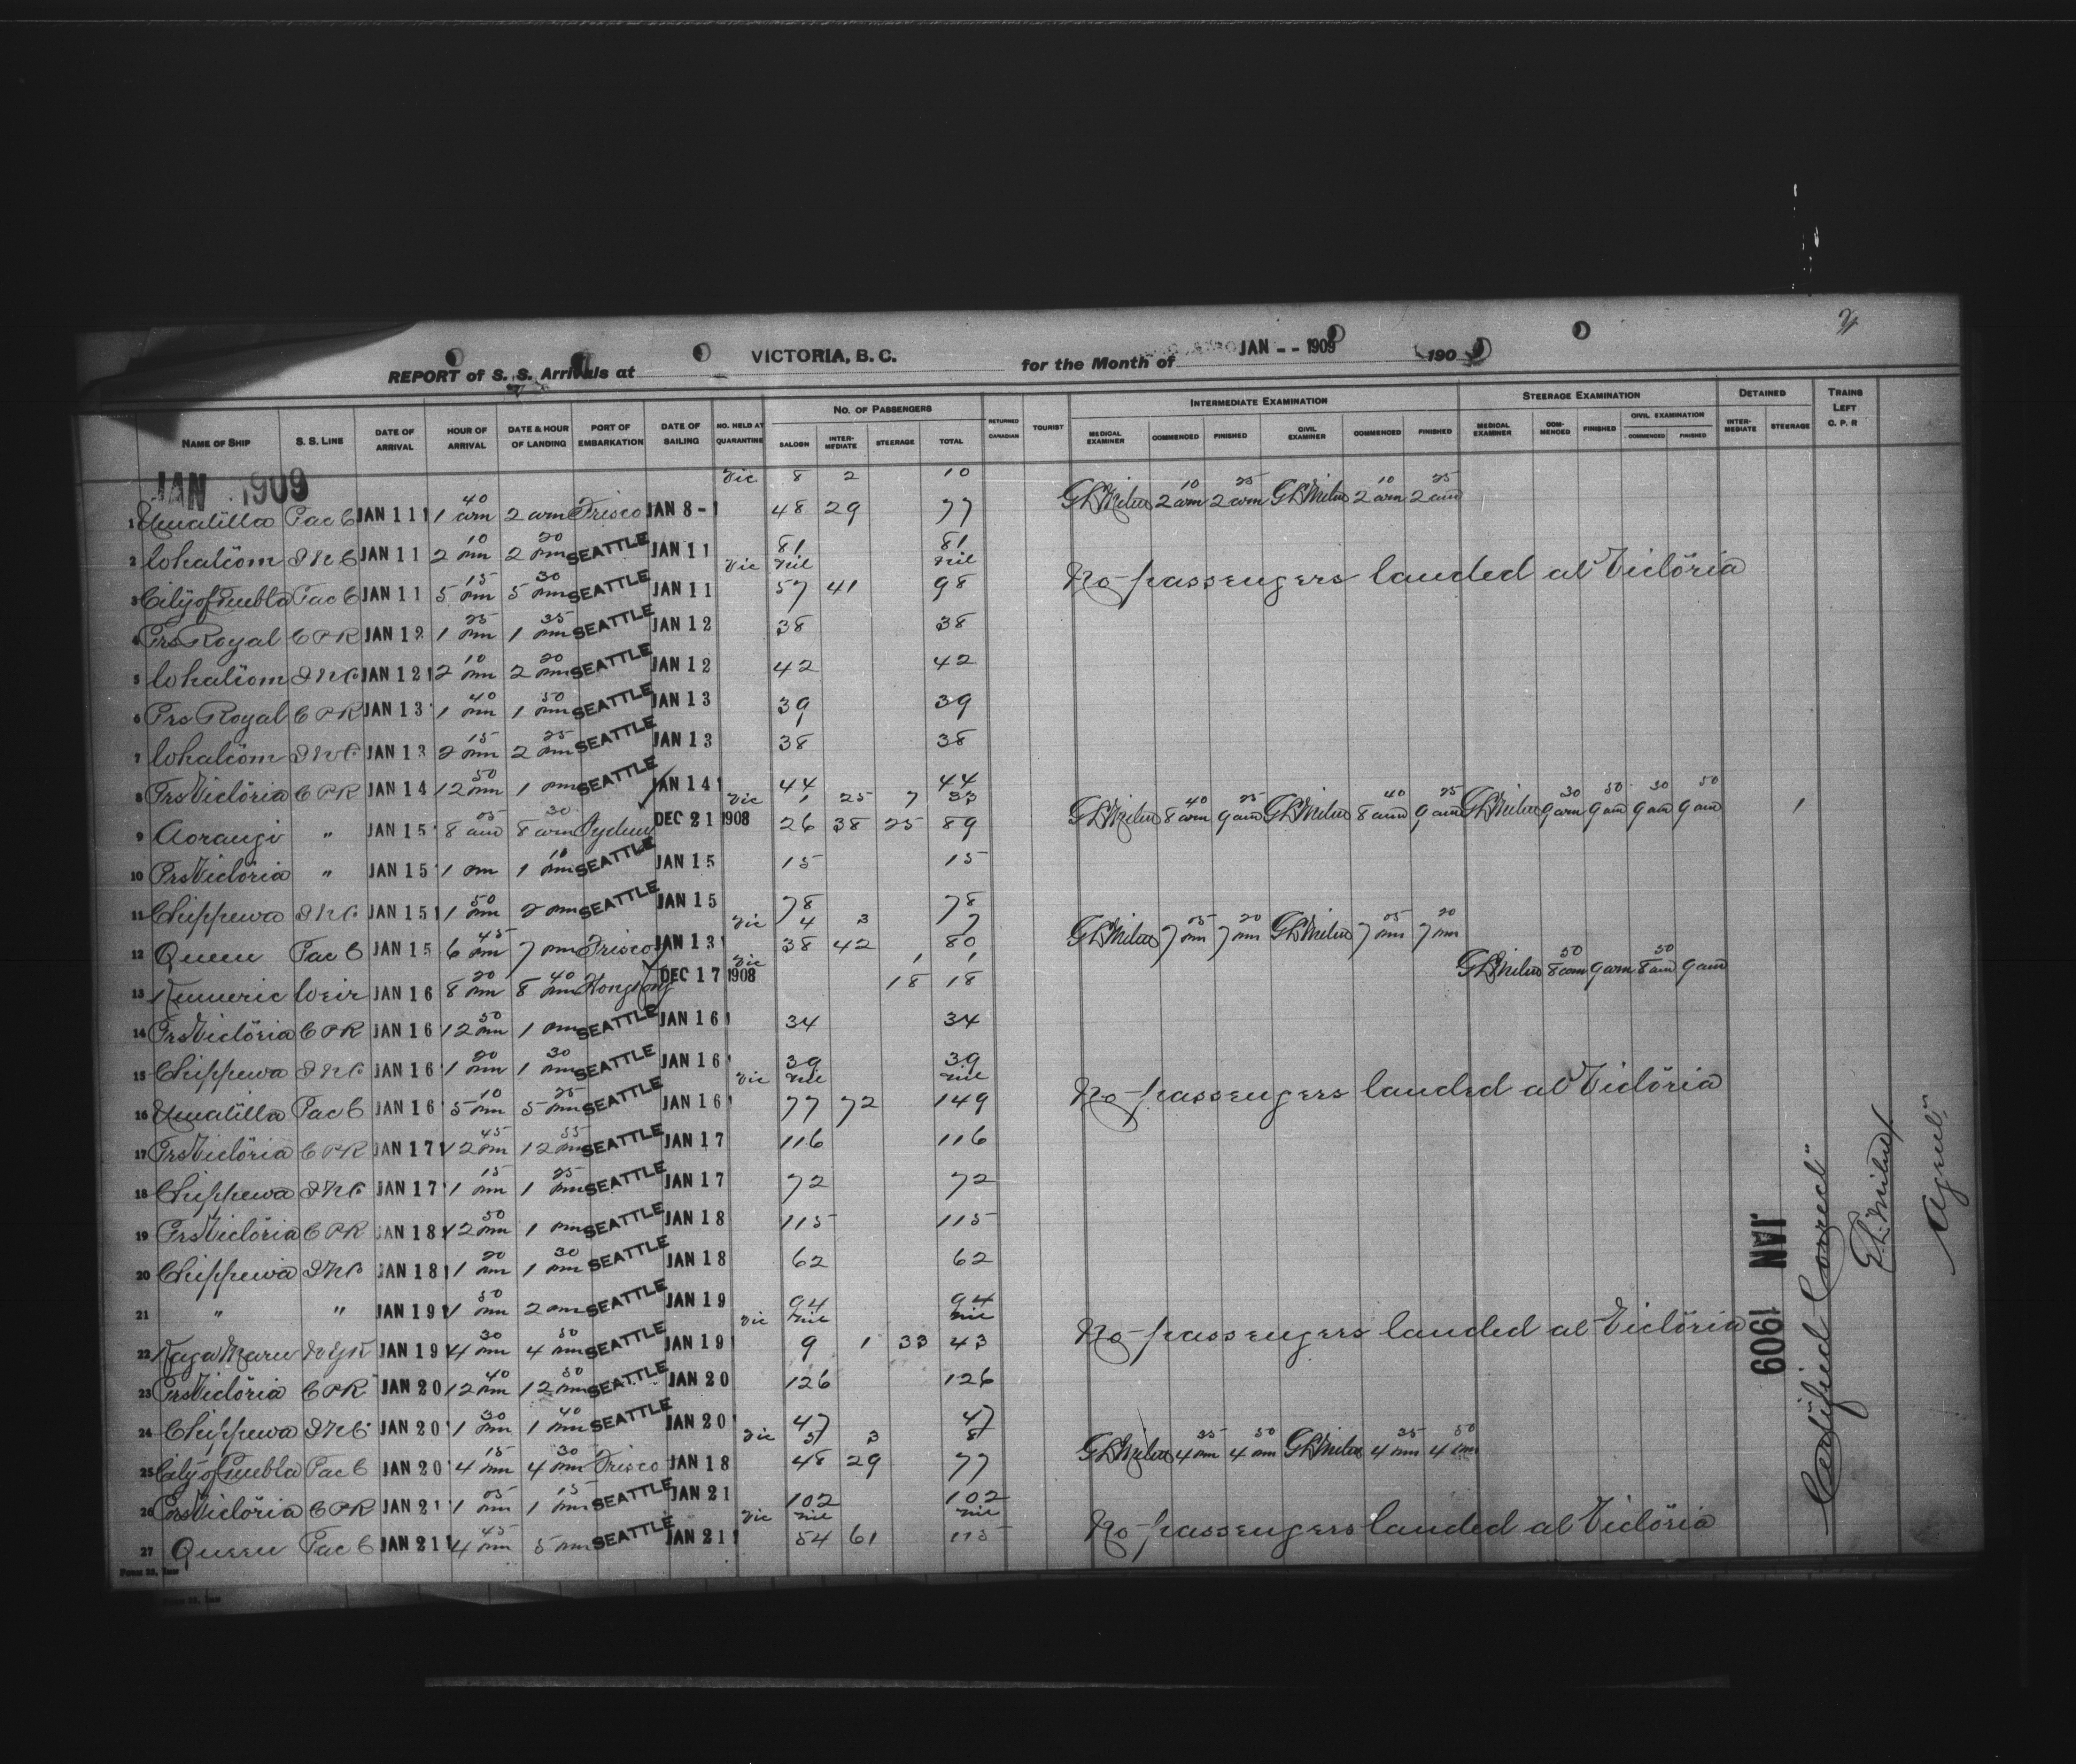 REPORT of S. S. Arrivals at VICTORIA, B. C. for the Month of JAN -- 1909 190
NAME OF SHIP S. S. LINE DATE OF ARRIVAL HOUR OF ARRIVAL DATE & HOUR OF LANDING PORT OF EMBARKATION DATE OF SAILING NO. HELD AT QUARANTINE NO. OF PASSENGERS SALOON INTER-MEDIATE STEERAGE TOTAL RETURNED CANADIAN TOURIST INTERMEDIATE EXAMINATION MEDICAL EXAMINER COMMENCED FINISHED CIVIL EXAMINER COMMENCED FINISHED STEERAGE EXAMINATION MEDICAL EXAMINER COM-MENCED FINISHED CIVIL EXAMINATION COMMENCED FINISHED DETAINED INTER-MEDIATE STEERAGE TRAINS LEFT C. P. R
JAN 1909 Vic 8 2 10
1 Umatilla Pac C JAN 11 1 40 am 2 am Frisco JAN 8 - 48 29 77 GLMilne 2 10 am 2 25 am GLMilne 2 10 am 2 25 am
2 Whatcom INC JAN 11 2 10 pm 2 20 pm SEATTLE JAN 11 81 81
Vic nil nil No passengers landed at Victoria
3 City of Puebla Pac C JAN 11 5 15 pm 5 30 pm SEATTLE JAN 11 57 41 98
4 Prs Royal CPR JAN 12 1 25 pm 1 35 pm SEATTLE JAN 12 38 38
5 Whatcom INC JAN 12 2 10 pm 2 20 pm SEATTLE JAN 12 42 42
6 Prs Royal CPR JAN 13 1 40 pm 1 50 pm SEATTLE JAN 13 39 39
7 Whatcom INC JAN 13 2 15 pm 2 25 pm SEATTLE JAN 13 38 38
8 Prs Victoria CPR JAN 14 12 50 pm 1 pm SEATTLE JAN 14 44 44
Vic 1 25 7 33 GLMilne 8 40 am 9 25 am GLMilne 8 40 am 9 25 am GLMilne 9 30 am 9 50 am 9 30 am 9 50 am 1
9 Aorangi " JAN 15 8 05 am 8 30 am Sydney DEC 21 1908 26 38 25 89
10 Prs Victoria " JAN 15 1 pm 1 10 pm SEATTLE JAN 15 15 15
11 Chippewa INC JAN 15 1 50 pm 2 pm SEATTLE JAN 15 78 78
Vic 4 3 7 GLMilne 7 05 pm 7 20 pm GLMilne 7 05 pm 7 20 pm
12 Queen Pac C JAN 15 6 45 pm 7 pm Frisco JAN 13 38 42 80
Vic 1 1 GLMilne 8 50 am 9 am 8 50 am 9 am
13 Kumeric Weir JAN 16 8 20 pm 8 40 pm Hongkong DEC 17 1908 18 18
14 Prs Victoria CPR JAN 16 12 50 pm 1 pm SEATTLE JAN 16 34 34
15 Chippewa INC JAN 16 1 20 pm 1 30 pm SEATTLE JAN 16 39 39
Vic nil nil No passengers landed at Victoria
16 Umatilla Pac C JAN 16 5 10 pm 5 25 pm SEATTLE JAN 16 77 72 149
17 Prs Victoria CPR JAN 17 12 45 pm 12 55 pm SEATTLE JAN 17 116 116
18 Chippewa INC JAN 17 1 15 pm 1 25 pm SEATTLE JAN 17 72 72
19 Prs Victoria CPR JAN 18 12 50 pm 1 pm SEATTLE JAN 18 115 115
20 Chippewa INC JAN 18 1 20 pm 1 30 pm SEATTLE JAN 18 62 62
21 " " JAN 19 1 50 pm 2 pm SEATTLE JAN 19 94 94
Vic nil nil No passengers landed at Victoria
22 Kaga Maru NYK JAN 19 4 30 pm 4 50 pm SEATTLE JAN 19 9 1 33 43
23 Prs Victoria CPR JAN 20 12 40 pm 12 50 pm SEATTLE JAN 20 126 126
24 Chippewa INC JAN 20 1 30 pm 1 40 pm SEATTLE JAN 20 47 47
Vic 5 3 8 GLMilne 4 35 pm 4 50 pm GLMilne 4 35 pm 4 50 pm
25 City of Puebla Pac C JAN 20 4 15 pm 4 30 pm Frisco JAN 18 48 29 77
26 Prs Victoria CPR JAN 21 1 05 pm 1 15 pm SEATTLE JAN 21 102 102
Vic nil nil No passengers landed at Victoria
27 Queen Pac C JAN 21 4 45 pm 5 pm SEATTLE JAN 21 54 61 115
JAN 1909
"Certified Correct"
G.L. Milne
Agent